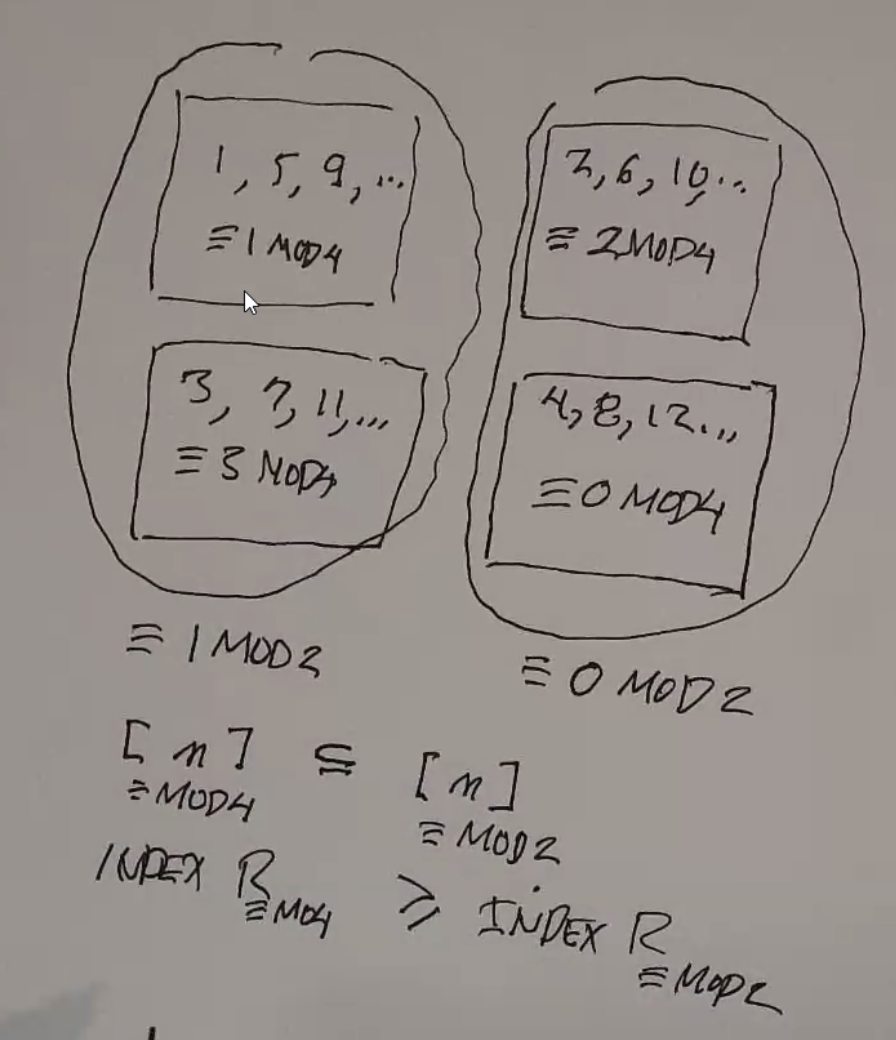 1, 5, 9, ...
≡ 1 MOD4
3, 7, 11, ...
≡ 3 MOD4
≡ 1 MOD2
2, 6, 10, ...
≡ 2 MOD4
4, 8, 12...
≡ 0 MOD4
≡ 0 MOD2
[n]≡MOD4 ⊆ [n]≡MOD2
INDEX R≡MO4 ≥ INDEX R≡MOD2